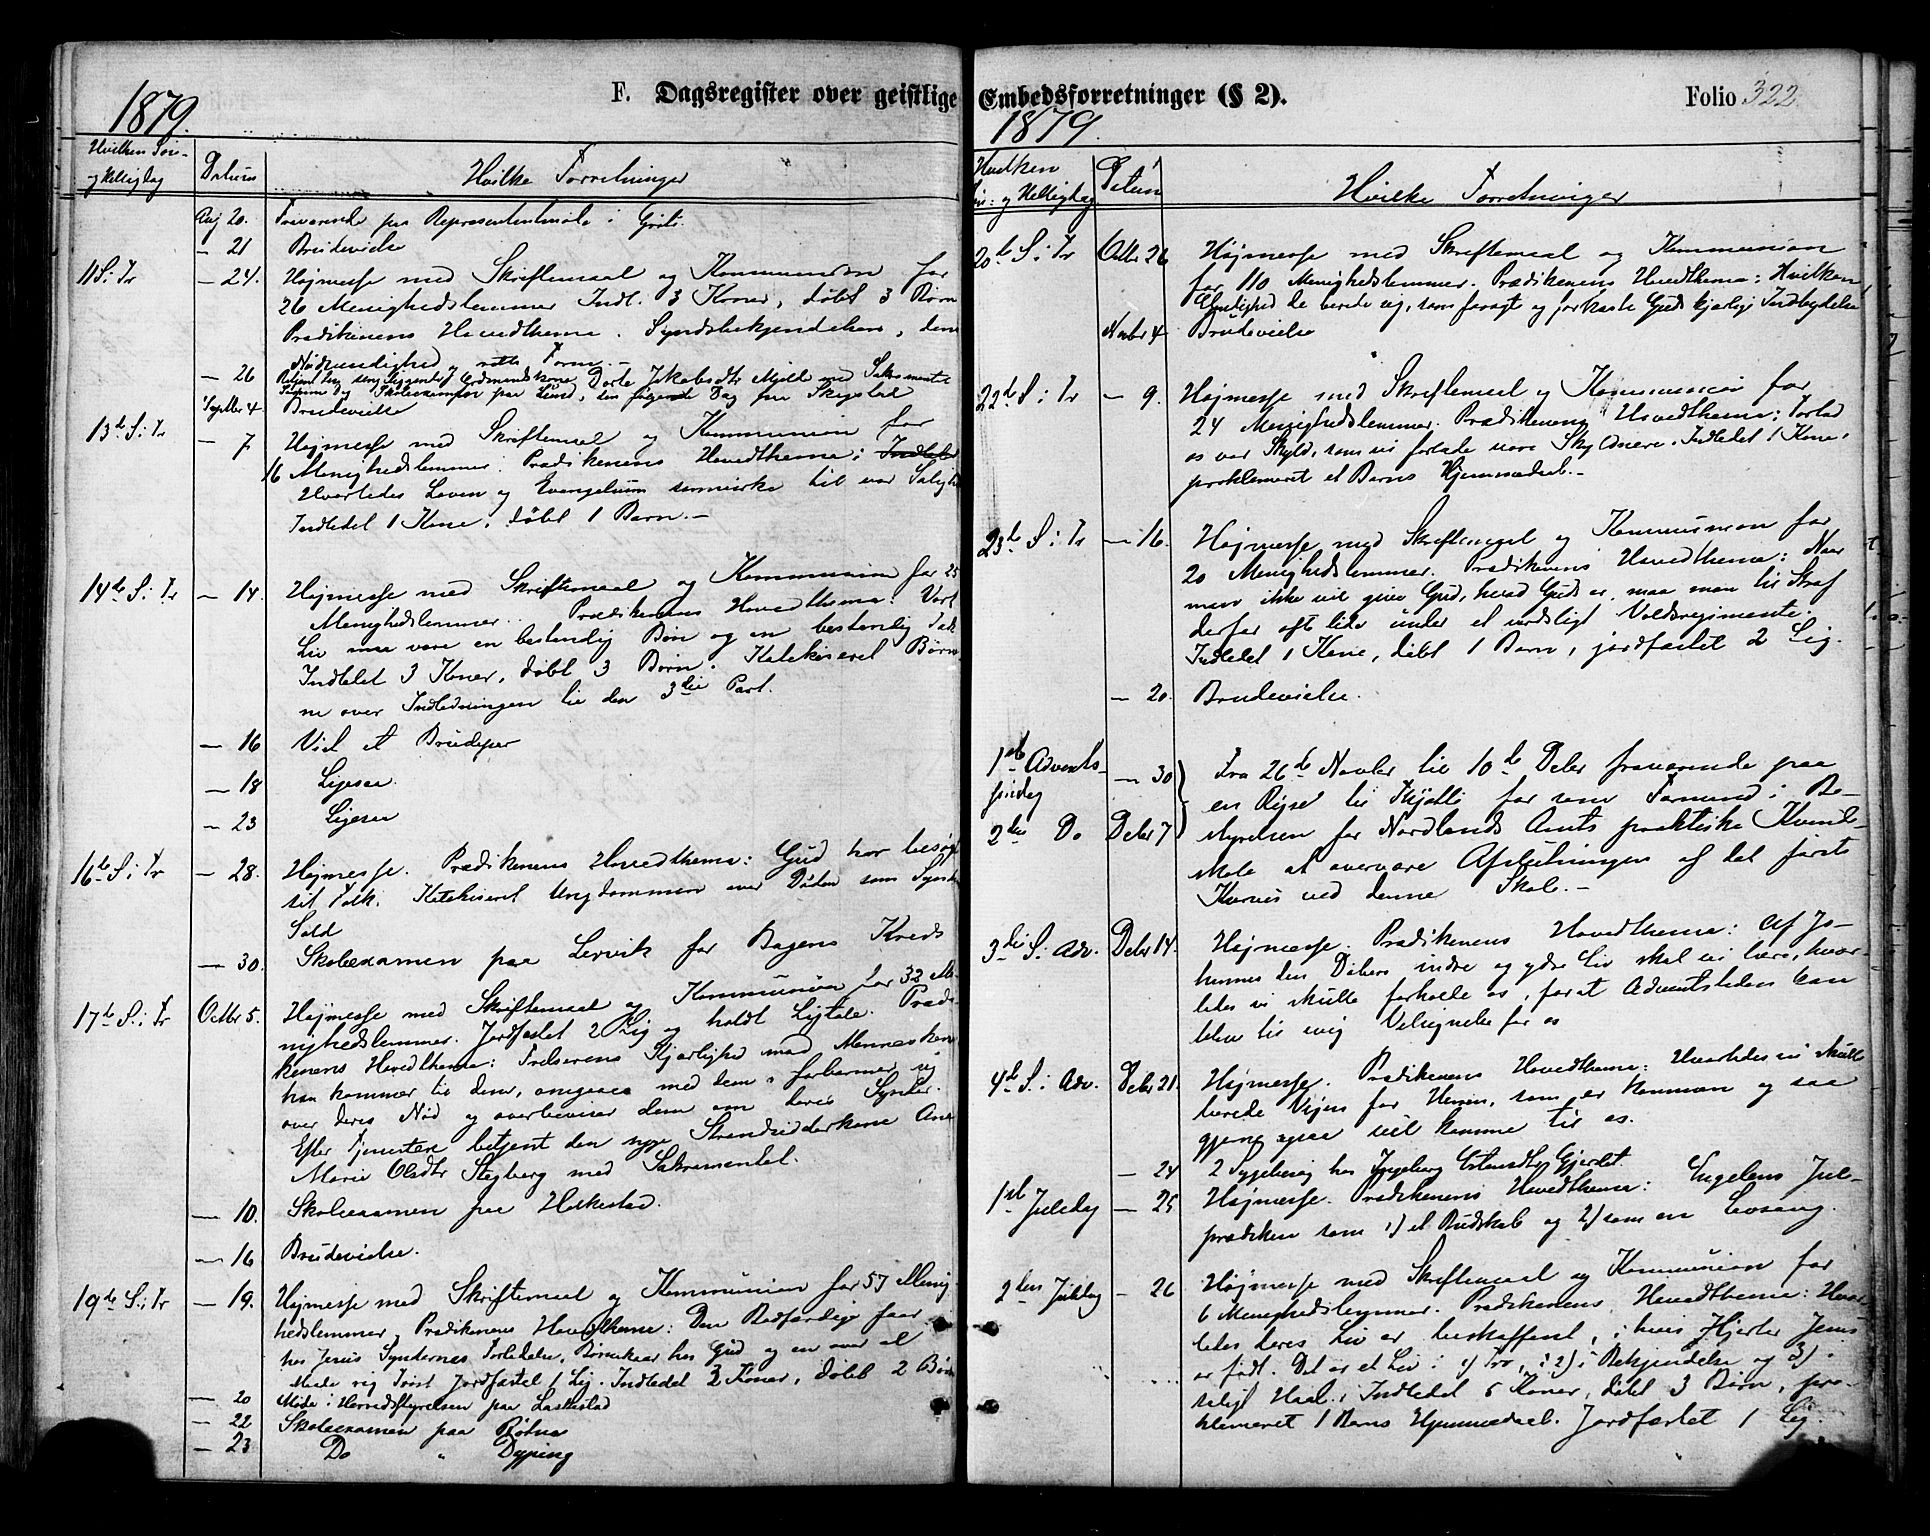 F. Dagsregister over geistlige
1879.
Hvilken Søn-
og Helligdag
Datum
Hvilke Forretninger
Aug 20. Fraværende paa Repræsentantmøde i
— 21 Brudevielse
11 S. i Tr — 24. Højmesse med Skriftemaal og Kommunion for
26 Menighedslemmer Indl. 3 Koner, døbt 3 Børn
Prædikenens Hovedthema. Syndsbekjendelsen, dens
Nødvendighed og rette Form. —
— 26 Betjent Gaardmandskone Dorte Jakobsdtr Mjelde med Sakramentet
og Skoleexamen paa Lund, den følgende Dag paa Skogstad
Septbr 4 Brudevielse
13de S. i Tr — 7 Højmesse med Skriftemaal og Kommunion for
16 Menighedslemmer. Prædikenens Hovedthema: Indledet
Hvorledes Loven og Evangelium samvirke til vor Salighed
Indledet 1 Kone, døbt 1 Barn. —
14de S. i Tr — 14. Højmesse med Skriftemaal og Kommunion for 25
Menighedslemmer. Prædikenens Hovedthema: Vort
Liv maa være en bestandig Bøn og en bestandig Tak
Indledet 3 Koner, døbt 3 Børn. Katekiseret Børne-
ne over Indledningen til den 3die Part.
— 16 Viet et Brudepar
— 18 Ligesaa
— 23 Ligesaa
16de S. i Tr — 28. Højmesse. Prædikenens Hovedthema: Gud har besøgt
sit Folk. Katekiseret Ungdommen over Døden som Syndens
Sold
— 30. Skoleexamen paa Lervik for Bogens Kreds
17de S. i Tr Octbr 5. Højmesse med Skriftemaal og Kommunion for 32 Me-
nighedslemmer. Jordfæstet 2 Lig og holdt Ligtale. Prædi-
kenens Hovedthema: Frelserens Kjærlighed mod Menneskene
han kommer til dem, omgaaes med dem, forbarmer sig
over deres Nød og overbeviser dem om deres Synder.
Efter Tjenesten betjent den syge Strandsidderkone Ane
Marie Olsdtr Stegberg med Sakramentet.
— 10. Skoleexamen paa Holkestad.
— 16 Brudevielse.
19de S. i Tr — 19. Højmesse med Skriftemaal og Kommunion for 57 Menig-
hedslemmer, Prædikenens Hovedthema: Den Bodfærdige faar
hos Jesus Syndernes Forladelse, Børnekaar hos Gud og en over al
Maade rig Trøst. Jordfæstet 1 Lig. Indledet 2 Koner, døbt 2 Børn
— 20 Møde i Herredstyrelsen paa Laskestad
— 22 Skoleexamen paa Røtnes
— 23 Do " Dyping
Embedsforretninger (§ 2).
Folio 322.
1879.
Hvilken
Søn- og Helligdag
Datum
Hvilke Forretninger
20de S. i Tr Octbr 26 Højmesse med Skriftemaal og Kommunion
for 110 Menighedslemmer. Prædikenens Hovedthema: Hvilken
Elendighed de berede sig, som foragt og forkaste Guds kjærlige Indbydelse
Novbr 4 Brudevielse
22de S. i Tr — 9. Højmesse med Skriftemaal og Kommunion for
24 Menighedslemmer. Prædikenens Hovedthema: Forlad
os vor Skyld, som vi forlade vore Skyldnere. Indledet 1 Kone,
proklameret et Barns Hjemmedaab. —
23de S. i Tr — 16. Højmesse med Skriftemaal og Kommunion for
20 Menighedslemmer. Prædikenens Hovedthema: Naar
man ikke vil give Gud, hvad Guds er, maa man til Straf
derfor oft lide under et verdsligt Voldsregimente.
Indledet 1 Kone, døbt 1 Barn, jordfæstet 2 Lig.
— 20. Brudevielse.
1ste Advents-
søndag — 30
2den Do Decbr 7
Fra 26de Novbr til 10de Decbr fraværende paa
en Rejse til Kjøtta for som Formand i Be-
styrelsen for Nordlands Amts praktiske Kvinde-
skole at overvære Afslutningen af det første
Kursus ved denne Skole. —
3die S. Adv. Decbr 14. Højmesse. Prædikenens Hovedthema: Af Jo-
hannes den Døbers indre og ydre Liv skal vi lære, hvor-
ledes vi skulle forholde os, forat Adventstiden kan
blive til evig Velsignelse for os
4de S. i Adv. Decbr 21. Højmesse. Prædikenens Hovedthema: Hvorledes vi skulle
berede Vejen for Herren, som er kommen og saa
gjerne ogsaa vil komme til os.
— 24 2 Sygebesøg hos Ingeborg Gjerdet.
1ste Juledag — 25 Højmesse. Prædikenens Hovedthema: Engelens Jule-
prædiken som 1) et Budskab og 2) som en Lovsang.
2den Juledag — 26 Højmesse med Skriftemaal og Kommunion for
6 Menighedslemmer. Prædikenens Hovedthema: Hvor-
ledes deres Liv er beskaffent, i hvis Hjerter Jesus
er født. Det er et Liv i 1) Tro, i 2) i Bekjendelse og 3)
saligt Haab. Indledet 5 Koner, døbt 3 Børn, pro-
klameret 1 Barns Hjemmedaab. Jordfæstet 1 Lig.